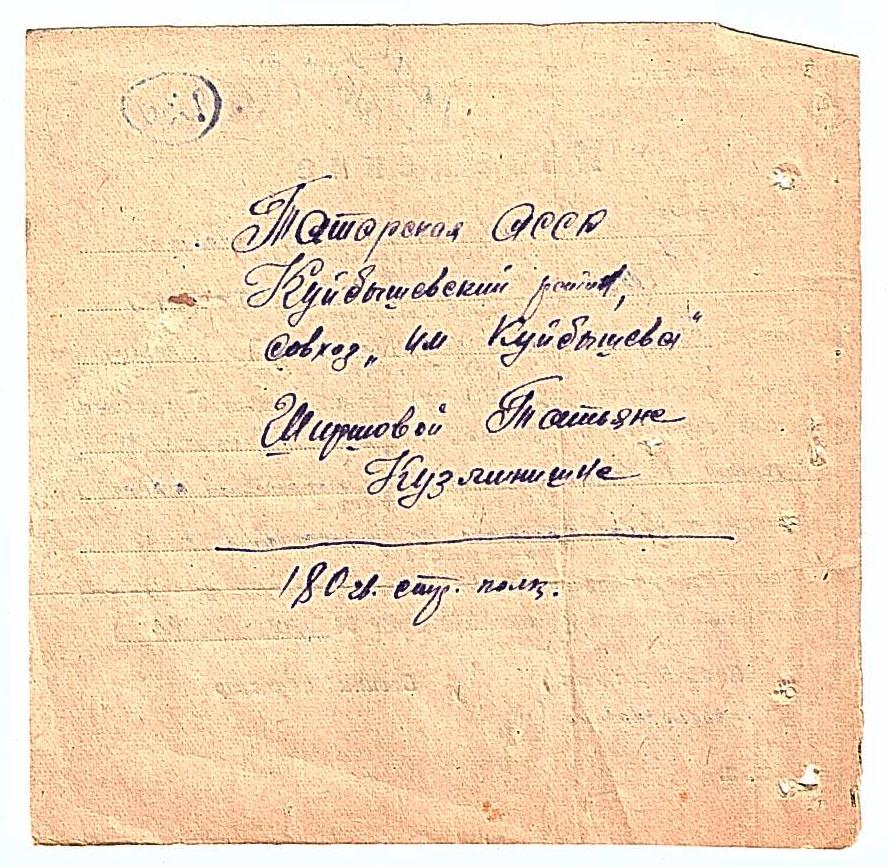 Татарская АССР
Куйбышевский район,
совхоз „им Куйбышева“
Ширшовой Татьяне
Кузминишне
180 гв. стр. полк.